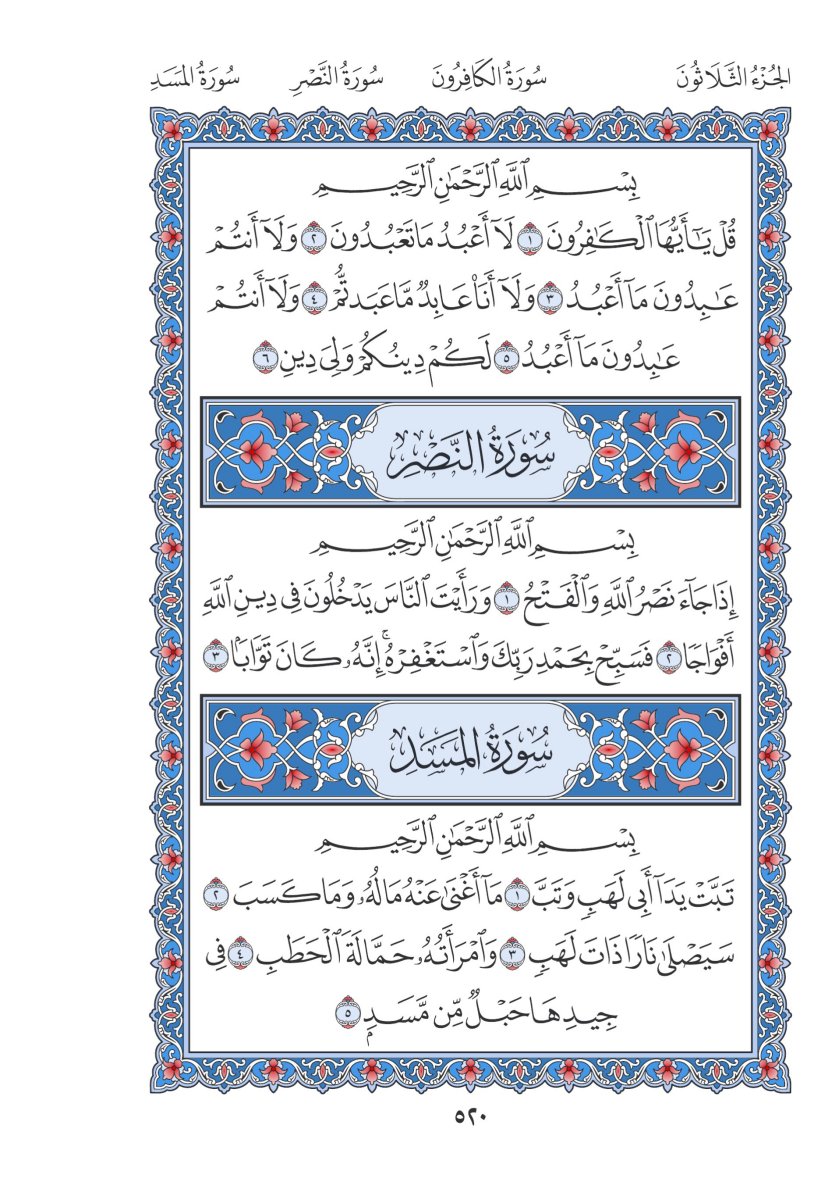 الجُزْءُ الثَّلَاثُونَ سُورَةُ الكَافِرُونَ سُورَةُ النَّصْرِ سُورَةُ المَسَدِ
بِسْمِ ٱللَّهِ ٱلرَّحْمَٰنِ ٱلرَّحِيمِ
قُلْ يَٰٓأَيُّهَا ٱلْكَٰفِرُونَ ١ لَآ أَعْبُدُ مَا تَعْبُدُونَ ٢ وَلَآ أَنتُمْ
عَٰبِدُونَ مَآ أَعْبُدُ ٣ وَلَآ أَنَا۠ عَابِدٌ مَّا عَبَدتُّمْ ٤ وَلَآ أَنتُمْ
عَٰبِدُونَ مَآ أَعْبُدُ ٥ لَكُمْ دِينُكُمْ وَلِيَ دِينِ ٦
سُورَةُ النَّصْرِ
بِسْمِ ٱللَّهِ ٱلرَّحْمَٰنِ ٱلرَّحِيمِ
إِذَا جَآءَ نَصْرُ ٱللَّهِ وَٱلْفَتْحُ ١ وَرَأَيْتَ ٱلنَّاسَ يَدْخُلُونَ فِي دِينِ ٱللَّهِ
أَفْوَاجًا ٢ فَسَبِّحْ بِحَمْدِ رَبِّكَ وَٱسْتَغْفِرْهُ ۚ إِنَّهُۥ كَانَ تَوَّابًۢا ٣
سُورَةُ المَسَدِ
بِسْمِ ٱللَّهِ ٱلرَّحْمَٰنِ ٱلرَّحِيمِ
تَبَّتْ يَدَآ أَبِي لَهَبٍ وَتَبَّ ١ مَآ أَغْنَىٰ عَنْهُ مَالُهُۥ وَمَا كَسَبَ ٢
سَيَصْلَىٰ نَارًا ذَاتَ لَهَبٍ ٣ وَٱمْرَأَتُهُۥ حَمَّالَةَ ٱلْحَطَبِ ٤ فِي
جِيدِهَا حَبْلٌ مِّن مَّسَدٍۭ ٥
٥٢٠